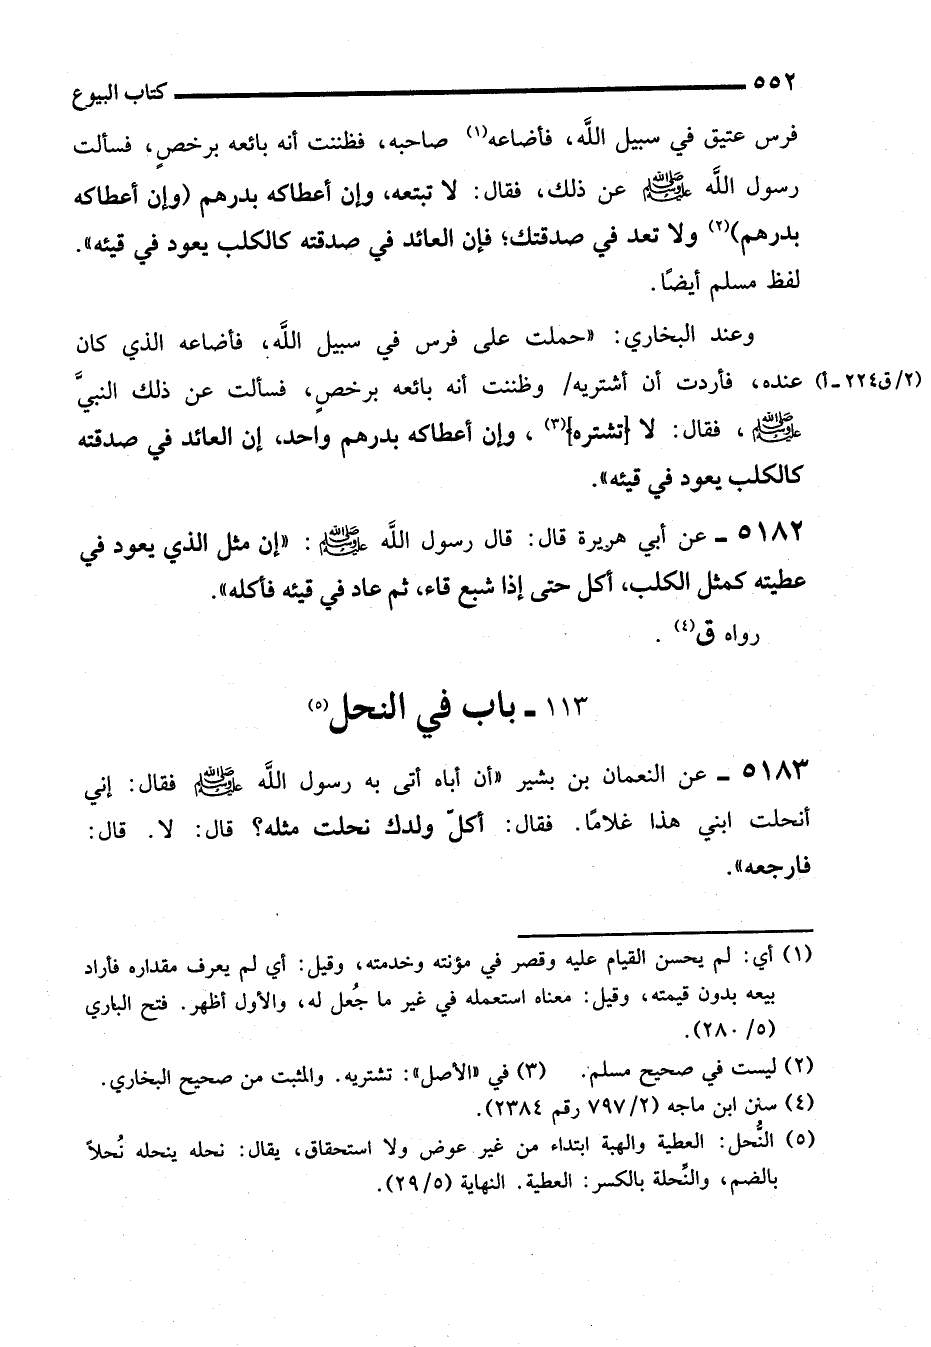 ٥٥٢ كتاب البيوع
فرس عتيق في سبيل اللَّه، فأضاعه(١) صاحبه، فظننت أنه بائعه برخصٍ، فسألت
رسول اللَّه ﷺ عن ذلك، فقال: لا تبتعه، وإن أعطاكه بدرهم (وإن أعطاكه
بدرهم)(٢) ولا تعد في صدقتك؛ فإن العائد في صدقته كالكلب يعود في قيئه».
لفظ مسلم أيضًا.
وعند البخاري: «حملت على فرس في سبيل اللَّه، فأضاعه الذي كان
(٢/ق٢٢٤-أ) عنده، فأردت أن أشتريه/ وظننت أنه بائعه برخصٍ، فسألت عن ذلك النبيَّ
ﷺ، فقال: لا {تشتره}(٣)، وإن أعطاكه بدرهم واحد، إن العائد في صدقته
كالكلب يعود في قيئه».
٥١٨٢ ـ عن أبي هريرة قال: قال رسول اللَّه ﷺ: «إن مثل الذي يعود في
عطيته كمثل الكلب، أكل حتى إذا شبع قاء، ثم عاد في قيئه فأكله».
رواه ق(٤).
١١٣ ـ باب في النحل(٥)
٥١٨٣ ـ عن النعمان بن بشير «أن أباه أتى به رسول اللَّه ﷺ فقال: إني
أنحلت ابني هذا غلامًا. فقال: أكلّ ولدك نحلت مثله؟ قال: لا. قال:
فارجعه».
(١) أي: لم يحسن القيام عليه وقصر في مؤنته وخدمته، وقيل: أي لم يعرف مقداره فأراد
بيعه بدون قيمته، وقيل: معناه استعمله في غير ما جُعل له، والأول أظهر. فتح الباري
(٢٨٠/٥).
(٢) ليست في صحيح مسلم. (٣) في «الأصل»: تشتريه. والمثبت من صحيح البخاري.
(٤) سنن ابن ماجه (٧٩٧/٢ رقم ٢٣٨٤).
(٥) النُّحل: العطية والهبة ابتداء من غير عوض ولا استحقاق، يقال: نحله ينحله نُحلاً
بالضم، والنِّحلة بالكسر: العطية. النهاية (٢٩/٥).